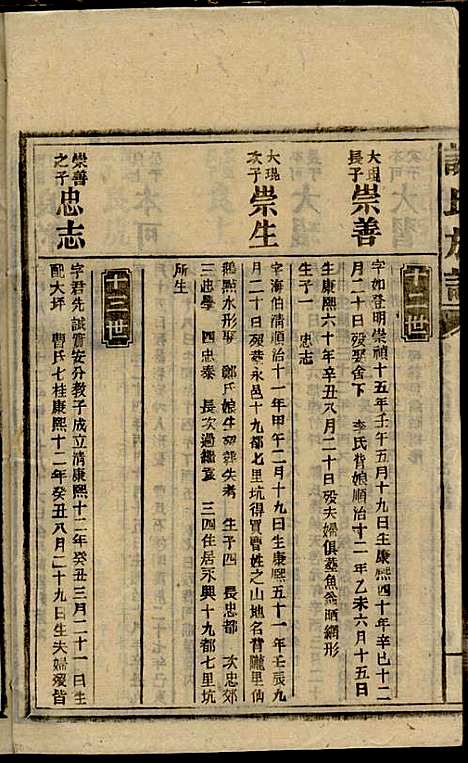 氏族譜
十二世
大琨長子 崇善
字如登明崇禎十五年壬午五月十九日生康熙四十年辛巳十二
月二十日歿娶舍下 李氏背娘順治十二年乙未六月十五日
生康熙六十年辛丑八月二十日歿夫婦俱塟魚翁晒網形
生子一 忠志
大琨次子 崇生
字海伯清順治十一年甲午二月十九日生康熙五十一年壬辰九
月二十日歿塟永邑十九都七里坑得買曹姓之山地名背隴里仙
鵝點水形娶 鄭氏娘生歿葬失考 生子四 長忠都 次忠郊
三忠學 四忠泰 長次過繼 三四住居永興十九都七里坑
所生
十三世
崇善之子 忠志
字君先誠實安分教子成立清康熙十二年癸丑三月二十一日生
配大坪 曹氏七桂康熙十二年癸丑八月二十九日生夫婦歿皆